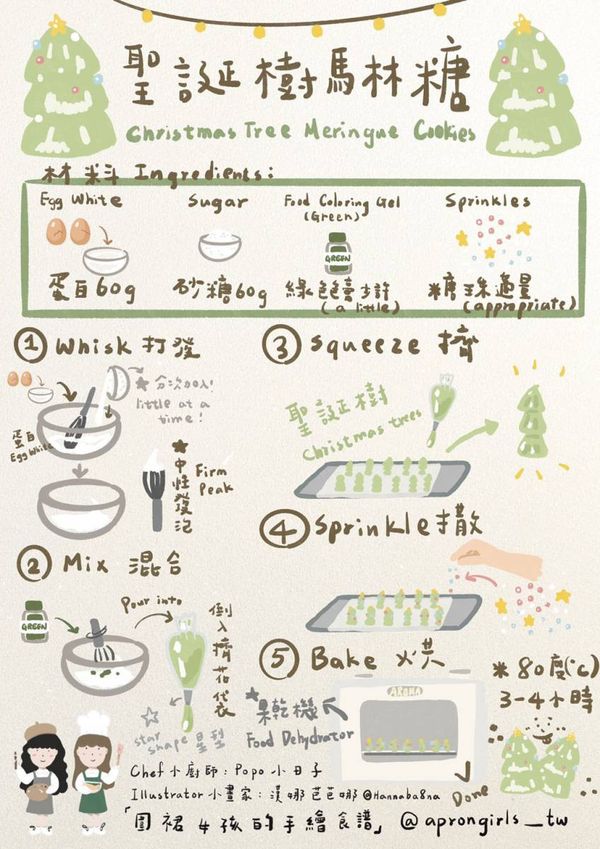 聖誕樹馬林糖
Christmas Tree Meringue Cookies
材料 Ingredients:
Egg White
Sugar
Food Coloring Gel
(Green)
Sprinkles
GREEN
蛋白60g
砂糖60g
綠色膏少許
(a little)
糖珠適量
(appropriate)
① Whisk 打發
★分次加入!
little at a
time!
蛋白
Egg White
★中性發泡
Firm
Peak
② Mix 混合
GREEN
Pour into
倒入擠花袋
star
shape 星型
③ Squeeze 擠
聖誕樹
Christmas trees
④ Sprinkle 撒
⑤ Bake 烘
★果乾機
Food Dehydrator
AROMA
※ 80度(°C)
3-4小時
Done
Chef 小廚師: Popo 小日子
Illustrator 小畫家: 漢娜芭芭娜 @Hannaba8na
「圍裙女孩的手繪食譜」 @aprongirls_tw